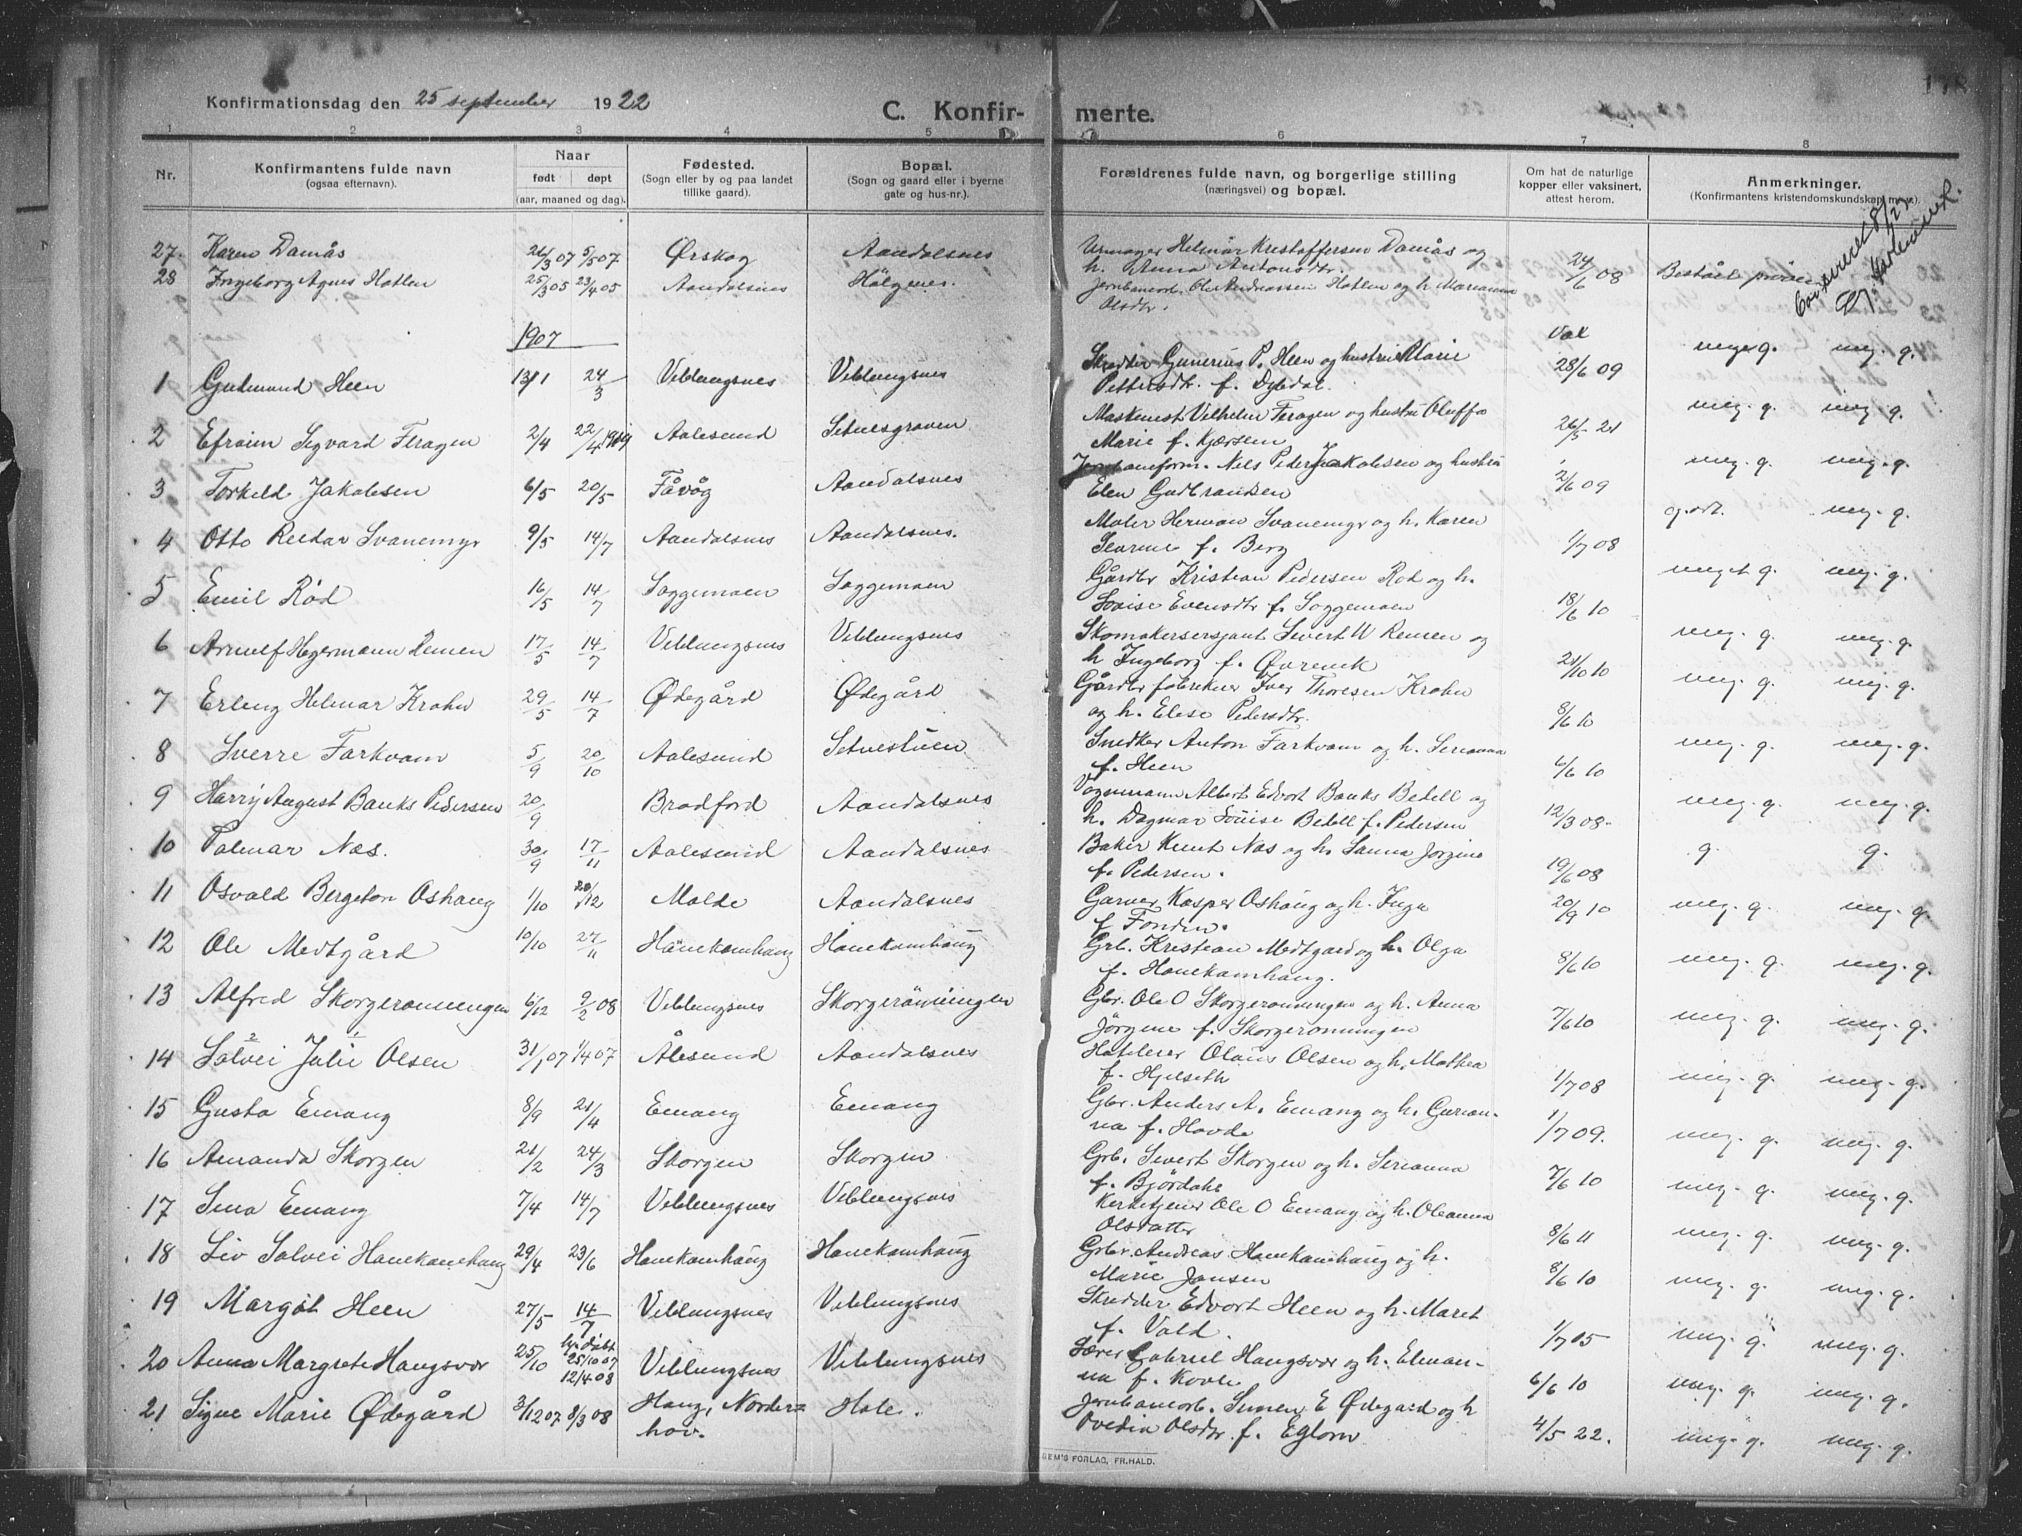 178
Konfirmationsdag den 25 september 1922
C. Konfirmerte.
1 2 3 4 5 6 7 8
Nr. Konfirmantens fulde navn (ogsaa efternavn). Naar født døpt (aar, maaned og dag). Fødested. (Sogn eller by og paa landet tillike gaard). Bopæl. (Sogn og gaard eller i byerne gate og hus-nr.). Forældrenes fulde navn, og borgerlige stilling (næringsvei) og bopæl. Om hat de naturlige kopper eller vaksinert, attest herom. Anmerkninger. (Konfirmantens kristendomskundskap m. v.)
27. Karen Damås 26/3 07 5/5 07 Ørskog Aandalsnes Urmager Helmar Kristoffersen Damås og
h. Anna Antonsdtr. 24/6 08
28 Ingeborg Agnes Hatlen 25/3 05 23/4 05 Aandalsnes Halgenes Jernbanearb. Ole Andreassen Hatlen og h Marianna
Olsdtr. Bestaål
1907
Vax
1 Gudmund Heen 13/1 24/3 Veblungsnes Veblungsnes Skredder Gunerius P. Heen og hustru Marie
Pettersdtr. f. Dybdal. 28/6 09 meget g. meg. g.
2 Efraim Sigvard Feragen 2/4 22/4 1919 Aalesund Setnesgraven Maskinist Vilhelm Feragen og hustru Oluffo
Marie f. Kjærsem 26/5 21 meg. g. meg. g.
3 Torkild Jakobsen 6/5 20/5 Fåvåg Aandalsnes Jernbaneform. Nils Peder Jakobsen og hustru
Elen Gudbrandsen 2/6 09 meg. g. meg. g.
4 Otto Reidar Svanemyr 9/5 14/7 Aandalsnes Aandalsnes. Maler Herman Svanemyr og h. Karen
Severine f. Berg 1/7 08 g. odt. meg. g.
5 Emil Rød 16/5 14/7 Soggemoen Soggemoen Gårdbr Kristian Pedersen Rød og h.
Lovise Evensdtr f. Soggemoen 18/6 10 meget g. meg. g.
6 Arnulf Hegermann Remen 17/5 14/7 Veblungsnes Veblungsnes Skomakersersjant Sivert W Remen og
h Ingeborg f. Øvrevik 21/10 10 meg. g. meg. g.
7 Erling Helmar Krohn 29/5 14/7 Ødegård Ødegård Gårdbr fabrikeier Iver Thoresen Krohn
og h. Elise Pedersdtr. 8/6 10 meg. g. meg. g.
8 Sverre Farkvam 5/9 20/10 Aalesund Setnestuen Snedker Anton Farkvam og h. Serianna
f. Heen 6/6 10 meg. g. meg. g.
9 Harry August Banks Pedersen 20/9 Bradford Aandalsnes Vognmann Albert Edvort Banks Betell og
h. Dagmar Lovise Betell f. Pedersen 12/3 08. meg. g. meg. g.
10 Palmar Nas. 30/9 17/11 Aalesund Aandalsnes Baker Knut Nas og h. Sanna Jorgine
f. Pedersen. 19/6 08 g. g.
11 Osvald Bergeton Oshaug 1/10 20/12 Molde Aandalsnes Garver Kasper Oshaug og h. Inga
f Fonden. 20/9 10 meg. g. meg. g.
12 Ole Medtgård 10/10 27/11 Hanekamhaug Hanekamhaug Grb. Kristian Medtgard og h. Olga
f. Hanekamhaug. 8/6 10 meg. g. meg. g.
13 Alfred Skorgerønningen 6/12 9/2 08 Veblungsnes Skorgerønningen Gbr. Ole O Skorgerønningen og h. Anna
Jørgine f. Skorgerønningen 7/6 10 meg. g. meg. g.
2 1
14 Solvei Julie Olsen 31/1 07 1/4 07 Ålesund Aandalsnes Hotileier Olaus Olsen og h. Mathea
f. Hjelseth 1/7 08 meg. g. meg. g.
15 Gusta Emang 8/9 21/4 Emang Emang Gbr. Anders A. Emang og h. Gurian-
na f. Hovde 1/7 09. meg. g. meg. g.
16 Amanda Skorgen 21/2 24/3 Skorgen Skorgen Grb. Sivert Skorgen og h. Serianna
f. Bjørdahl 7/6 10 meg. g. meg. g.
17 Sina Emang 7/4 14/7 Veblungsnes Veblungsnes Kirketjener Ole O Emang og h. Oleanna
Olsdatter 8/6 11 meg. g. meg. g.
18 Liv Solvei Hanekamhaug 29/4 23/6 Hanekamhaug Hanekamhaug Grbr. Andreas Hanekamhaug og h.
Marie Jansen 8/6 10 meg. g. meg. g.
19 Margot Heen 27/5 14/7 Veblungsnes Veblungsnes Skredder Edvort Heen og h. Maret
f. Vold. 1/7 05 meg. g. meg. g.
20 Anna Margrete Haugsvor 25/10 hj. døbt 25/10 07 12/4 08 Veblungsnes Veblungsnes Lærer Gabriel Haugsvor og h. Elman-
na f. Kovli 6/6 10 meg. g. meg. g.
21 Signe Marie Ødegård 3/12 07 8/3 08 Haug, Norder=
hov. Hole. Jernbanearb. Simen E Ødegard og h
Ovedia Olsdtr. f. Eglom 4/5 22. meg. g. meg. g.
EM'S FORLAG, FR.HALD.